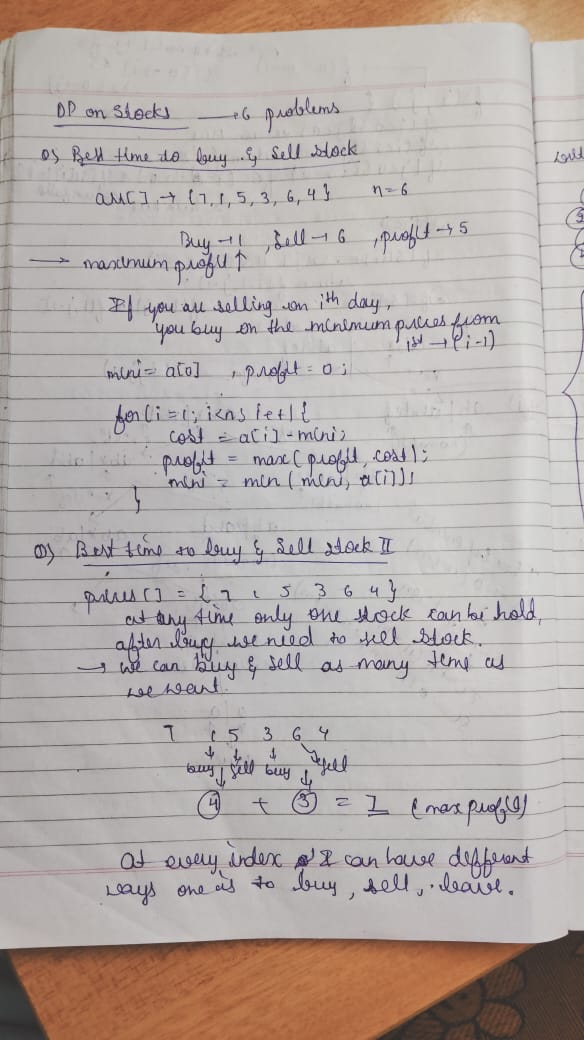 DP on Stocks → 6 problems
Q) Best time to buy & Sell stock
arr[] → {7, 1, 5, 3, 6, 4} n = 6
Buy → 1, Sell → 6, profit → 5
→ maximum profit ↑
If you are selling on ith day,
you buy on the minimum prices from
1st → (i-1)
mini = a[0], profit = 0;
for(i = 1; i<n; i++){
cost = a[i] - mini;
profit = max(profit, cost);
mini = min(mini, a[i]);
}
Q) Best time to buy & Sell stock II
prices[] = {7 1 5 3 6 4}
at any time only one stock can be hold,
after buy we need to sell stock.
→ we can buy & sell as many time as
we want.
7 1 5 3 6 4
buy sell buy sell
4 + 3 = 7 (max profit)
at every index I can have different
ways one is to buy, sell, leave.